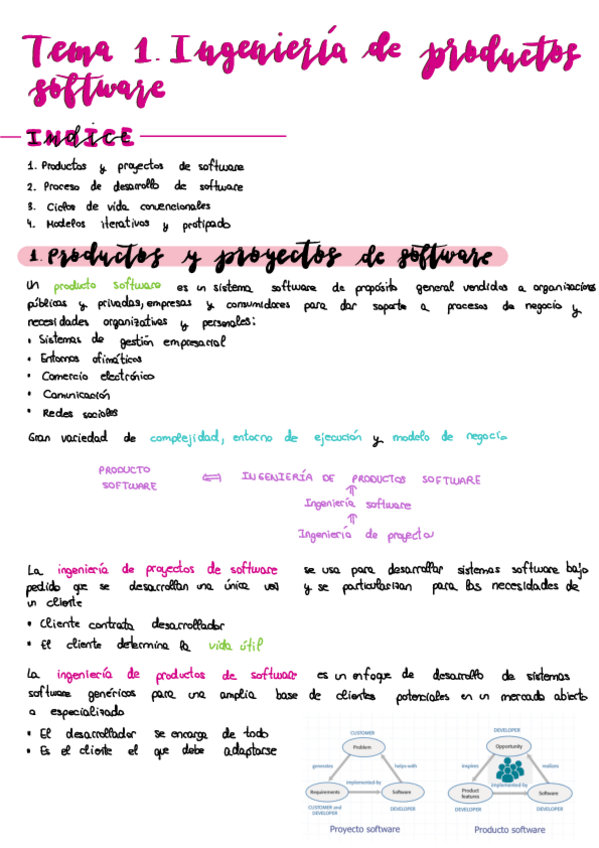 Tema 1. Ingeniería de productos
software
INDICE
1. Productos y proyectos de software
2. Proceso de desarrollo de software
3. Ciclos de vida convencionales
4. Modelos iterativos y protipado
1. Productos y proyectos de software
Un producto software es un sistema software de propósito general vendidos a organizaciones
públicas y privadas, empresas y consumidores para dar soporte a procesos de negocio y
necesidades organizativas y personales:
• Sistemas de gestión empresarial
• Entornos ofimáticos
• Comercio electrónico
• Comunicación
• Redes sociales
Gran variedad de complejidad, entorno de ejecución y modelo de negocio
PRODUCTO SOFTWARE ⇐⇒ INGENIERÍA DE PRODUCTOS SOFTWARE
⇑
Ingeniería software
⇑
Ingeniería de proyectos
La ingeniería de proyectos de software se usa para desarrollar sistemas software bajo
pedido que se desarrollan una única vez y se particularizan para las necesidades de
un cliente
• Cliente contrata desarrollador
• El cliente determina la vida útil
La ingeniería de productos de software es un enfoque de desarrollo de sistemas
software genéricos para una amplia base de clientes potenciales en un mercado abierto
o especializado
• El desarrollador se encarga de todo
• Es el cliente el que debe adaptarse
CUSTOMER
Problem
generates
helps with
implemented by
Requirements
Software
CUSTOMER and
DEVELOPER
DEVELOPER
Proyecto software
DEVELOPER
Opportunity
inspires
realizes
implemented by
Product
features
Software
DEVELOPER
DEVELOPER
Producto software